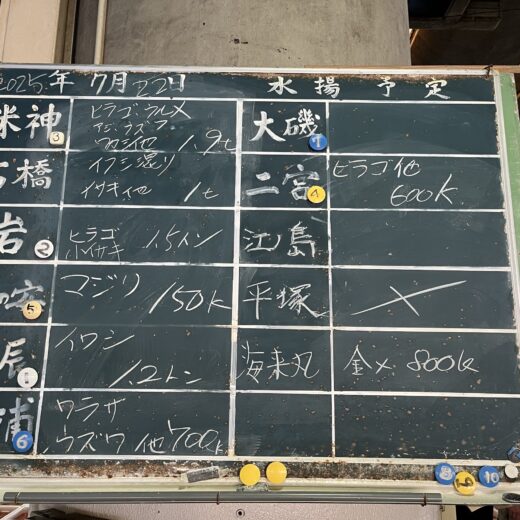 2025年 7月22日 水揚予定
米神 3
ヒラゴ、ウルメ
アジ、ウズワ
他 1.9t
石橋
イワシ混り
イサキ他 1t
岩 2
ヒラゴ 1.5トン
小イサキ
安 5
マジリ 150K
辰
イワシ
1.2トン
浦 6
ワラサ
ウズワ 他 700K
大磯 1
二宮 4
ヒラゴ他
600K
江島
平塚 ×
海来丸 金メ 800K
10